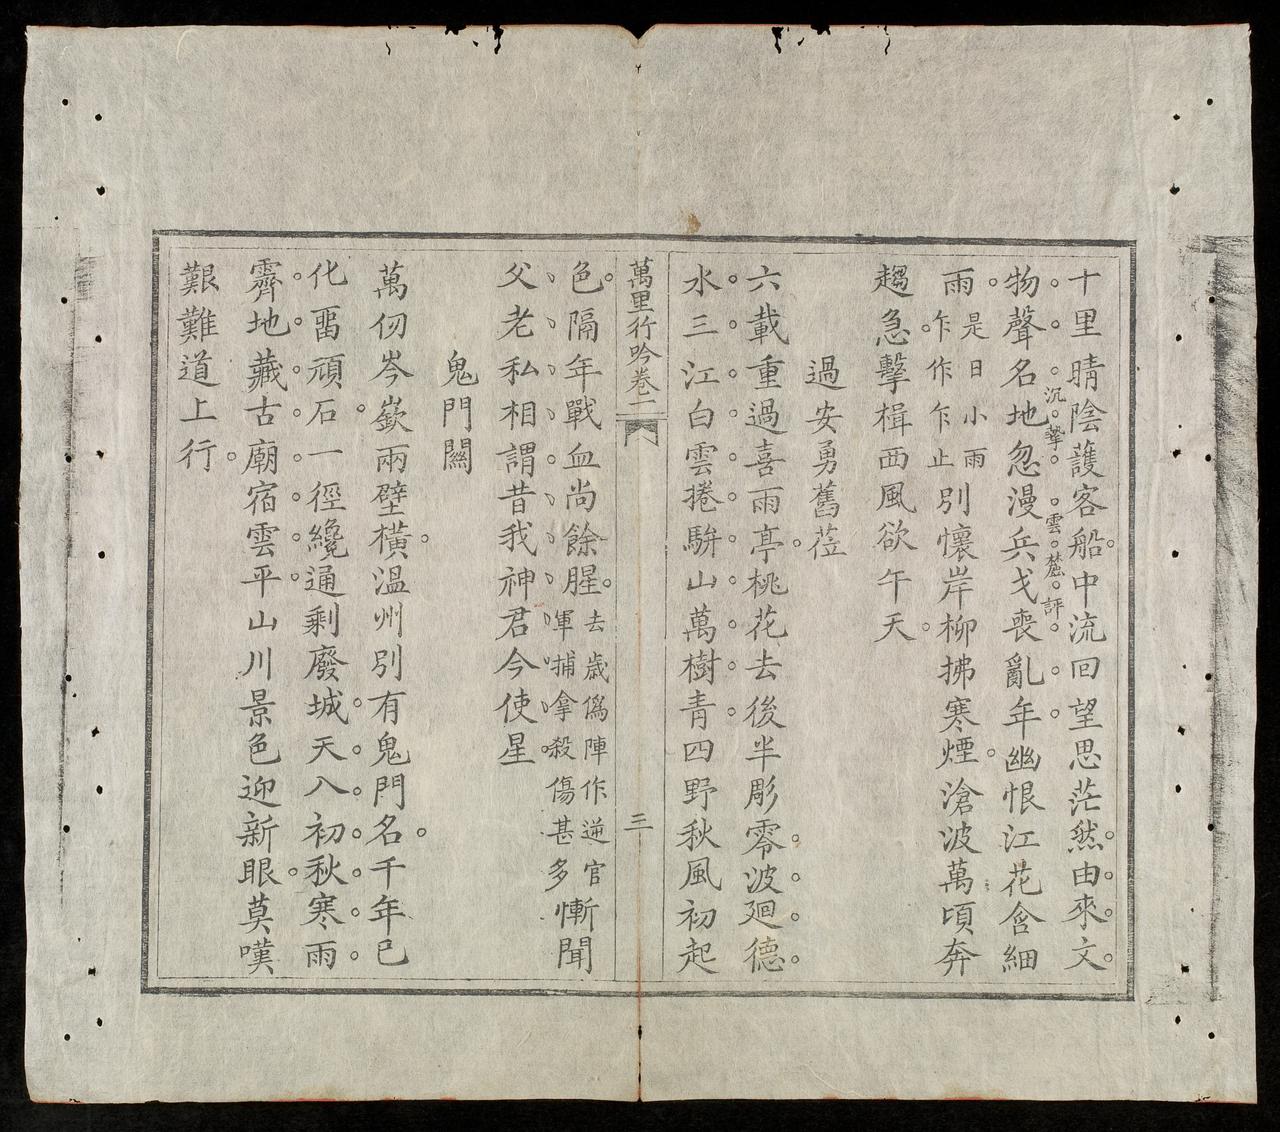 十里晴陰護客船中流回望思茫然由來文
物聲名地忽漫兵戈喪亂年幽恨江花含細
沉摯雲麓評
雨是日小雨乍作乍止別懷岸柳拂寒煙滄波萬頃奔
趨急擊楫西風欲午天
過安勇舊蒞
六載重過喜雨亭桃花去後半彫零波廻德
水三江白雲捲駢山萬樹青四野秋風初起
萬里行吟卷一
三
色隔年戰血尚餘腥去歲僞陣作逆官軍捕拿殺傷甚多慚聞
父老私相謂昔我神君今使星
鬼門關
萬仞岑嶔兩壁橫温州別有鬼門名千年已
化畱頑石一徑纔通剩廢城天入初秋寒雨
霽地藏古廟宿雲平山川景色迎新眼莫嘆
艱難道上行